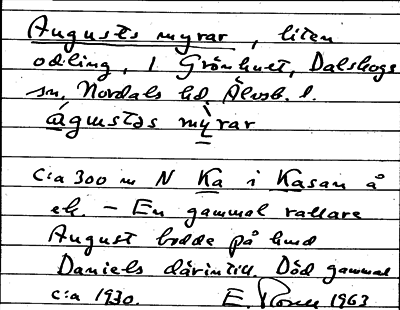 Augusts myrar, liten
odling, i Grönhult, Dalskogs
sn, Nordals hd, Älvsb. l.
águstəs mỳrar
c:a 300 m N Ka i Kasan å
ek. – En gammal rallare
August bodde på
Daniels därintill. Död gammal
c:a 1930. E. 1963